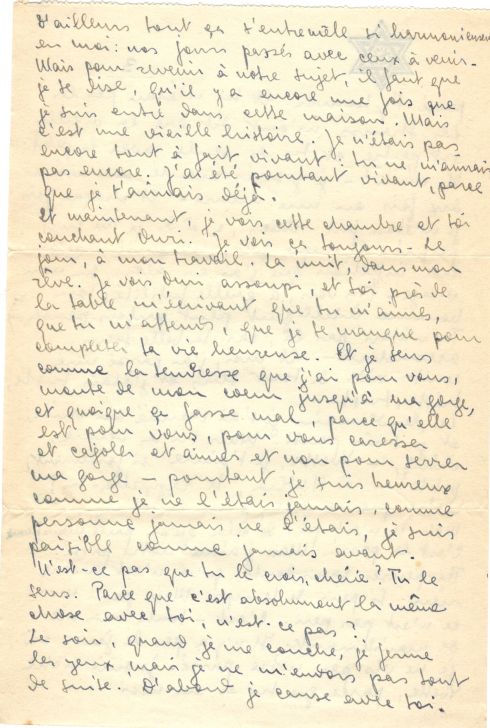 D'ailleurs tout ça s'entremêle si harmonieusem
en moi: nos jours passés avec ceux à venir.
Mais pour revenir à notre sujet, il faut que
je te dise, qu'il y a encore une fois que
je suis entré dans cette maison. Mais
c'est une vieille histoire. Je n'étais pas
encore tout à fait vivant: tu ne m'aimais
pas encore. J'ai été pourtant vivant, parce
que je t'aimais déjà.
Et maintenant, je vois cette chambre et toi
couchant Ouri. Je vois ça toujours. Le
jour, à mon travail. La nuit, dans mon
rêve. Je vois Ouri assoupi, et toi près de
la table m'écrivant que tu m'aimes,
que tu m'attends, que je te manque pour
completer ta vie heureuse. Et je sens
comme la tendresse que j'ai pour vous,
monte de mon coeur jusqu'à ma gorge,
et quoique ça fasse mal, parce qu'elle
est pour vous, pour vous caresser
et cajoler et aimer et non pour serrer
ma gorge – pourtant je suis heureux
comme je ne l'étais jamais, comme
personne jamais ne l'était, je suis
paisible comme jamais avant.
N'est-ce pas que tu le crois, chérie? Tu le
sens. Parce que c'est absolument la même
chose avec toi, n'est-ce pas?
Le soir, quand je me couche, je ferme
les yeux, mais je ne m'endors pas tout
de suite. D'abord je cause avec toi.